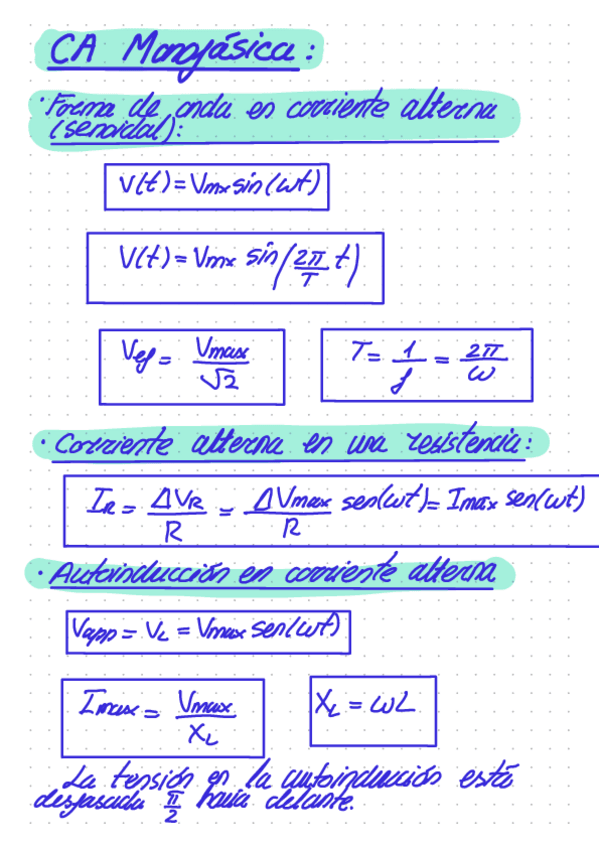 CA Monofásica:
· Forma de onda en corriente alterna
(senoidal):
V(t) = Vmx sin(ωt)
V(t) = Vmx sin(2π/T t)
Vef = Vmax/√2
T = 1/f = 2π/ω
· Corriente alterna en una resistencia:
IR = ΔVR/R = ΔVmax/R sen(ωt) = Imax sen(ωt)
· Autoinducción en corriente alterna
Vapp = VL = Vmax sen(ωt)
Imax = Vmax/XL
XL = ωL
La tensión en la autoinducción está
desfasada π/2 hacia delante.